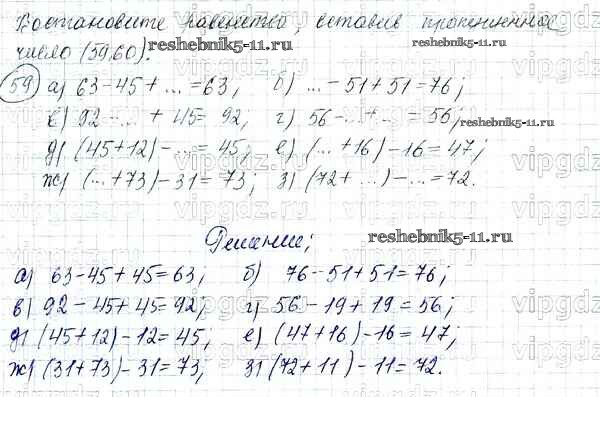 Востановите равенство, вставив пропущенное
число (59,60).
reshebnik5-11.ru
59 а) 63-45+...=63, б) ...-51+51=76;
в) 92-...+45=92, г) 56-...+...=56;
reshebnik5-11.ru
д) (45+12)-...=45, е) (...+16)-16=47;
ж) (...+73)-31=73; з) (72+...)-...=72.
Решение;
reshebnik5-11.ru
а) 63-45+45=63; б) 76-51+51=76;
в) 92-45+45=92; г) 56-19+19=56;
д) (45+12)-12=45; е) (47+16)-16=47;
ж) (31+73)-31=73; з) (72+11)-11=72.
vipgdz